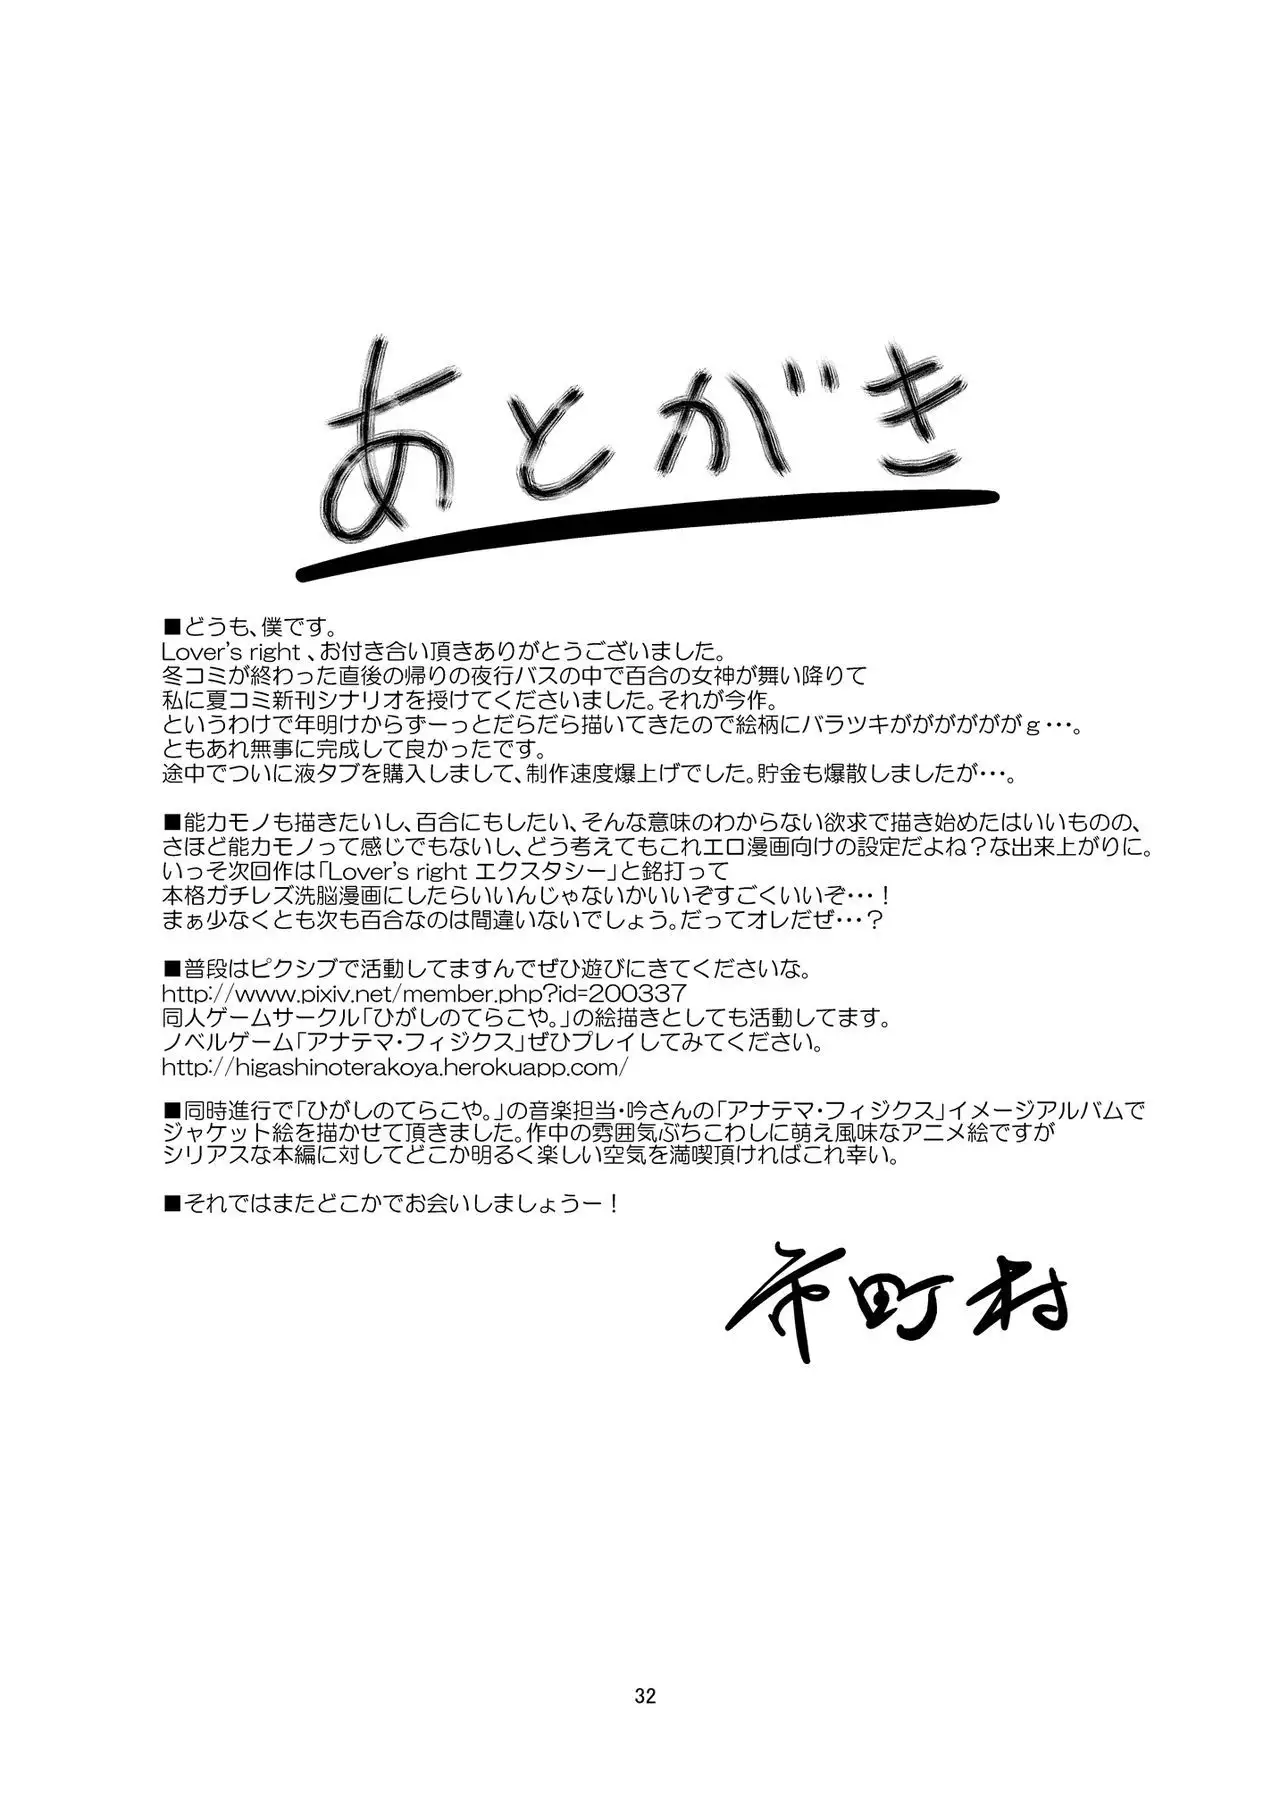 あとがき
■どうも、僕です。
Lover's right 、お付き合い頂きありがとうございました。
冬コミが終わった直後の帰りの夜行バスの中で百合の女神が舞い降りて
私に夏コミ新刊シナリオを授けてくださいました。それが今作。
というわけで年明けからずーっとだらだら描いてきたので絵柄にバラツキががががががｇ・・・。
ともあれ無事に完成して良かったです。
途中でついに液タブを購入しまして、制作速度爆上げでした。貯金も爆散しましたが・・・。
■能力モノも描きたいし、百合にもしたい、そんな意味のわからない欲求で描き始めたはいいものの、
さほど能力モノって感じでもないし、どう考えてもこれエロ漫画向けの設定だよね？な出来上がりに。
いっそ次回作は「Lover's right エクスタシー」と銘打って
本格ガチレズ洗脳漫画にしたらいいんじゃないかいいぞすごくいいぞ・・・！
まぁ少なくとも次も百合なのは間違いないでしょう。だってオレだぜ・・・？
■普段はピクシブで活動してますんでぜひ遊びにきてくださいな。
http://www.pixiv.net/member.php?id=200337
同人ゲームサークル「ひがしのてらこや。」の絵描きとしても活動してます。
ノベルゲーム「アナテマ・フィジクス」ぜひプレイしてみてください。
http://higashinoterakoya.herokuapp.com/
■同時進行で「ひがしのてらこや。」の音楽担当・吟さんの「アナテマ・フィジクス」イメージアルバムで
ジャケット絵を描かせて頂きました。作中の雰囲気ぶちこわしに萌え風味なアニメ絵ですが
シリアスな本編に対してどこか明るく楽しい空気を満喫頂ければこれ幸い。
■それではまたどこかでお会いしましょうー！
市町村
32